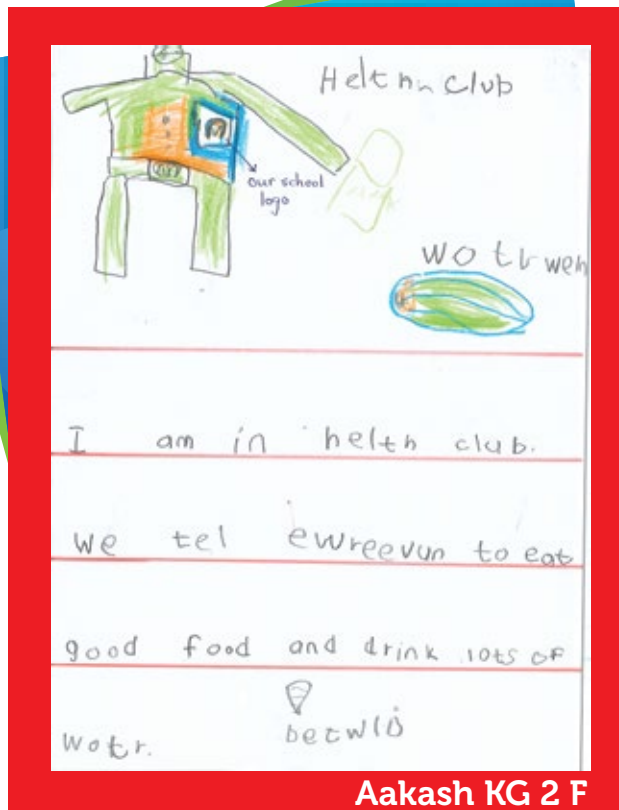 Helthn club
our school
logo
wotr weh
I am in helth club.
we tel ewreevun to eat
good food and drink lots of
wotr.
Aakash KG 2 F